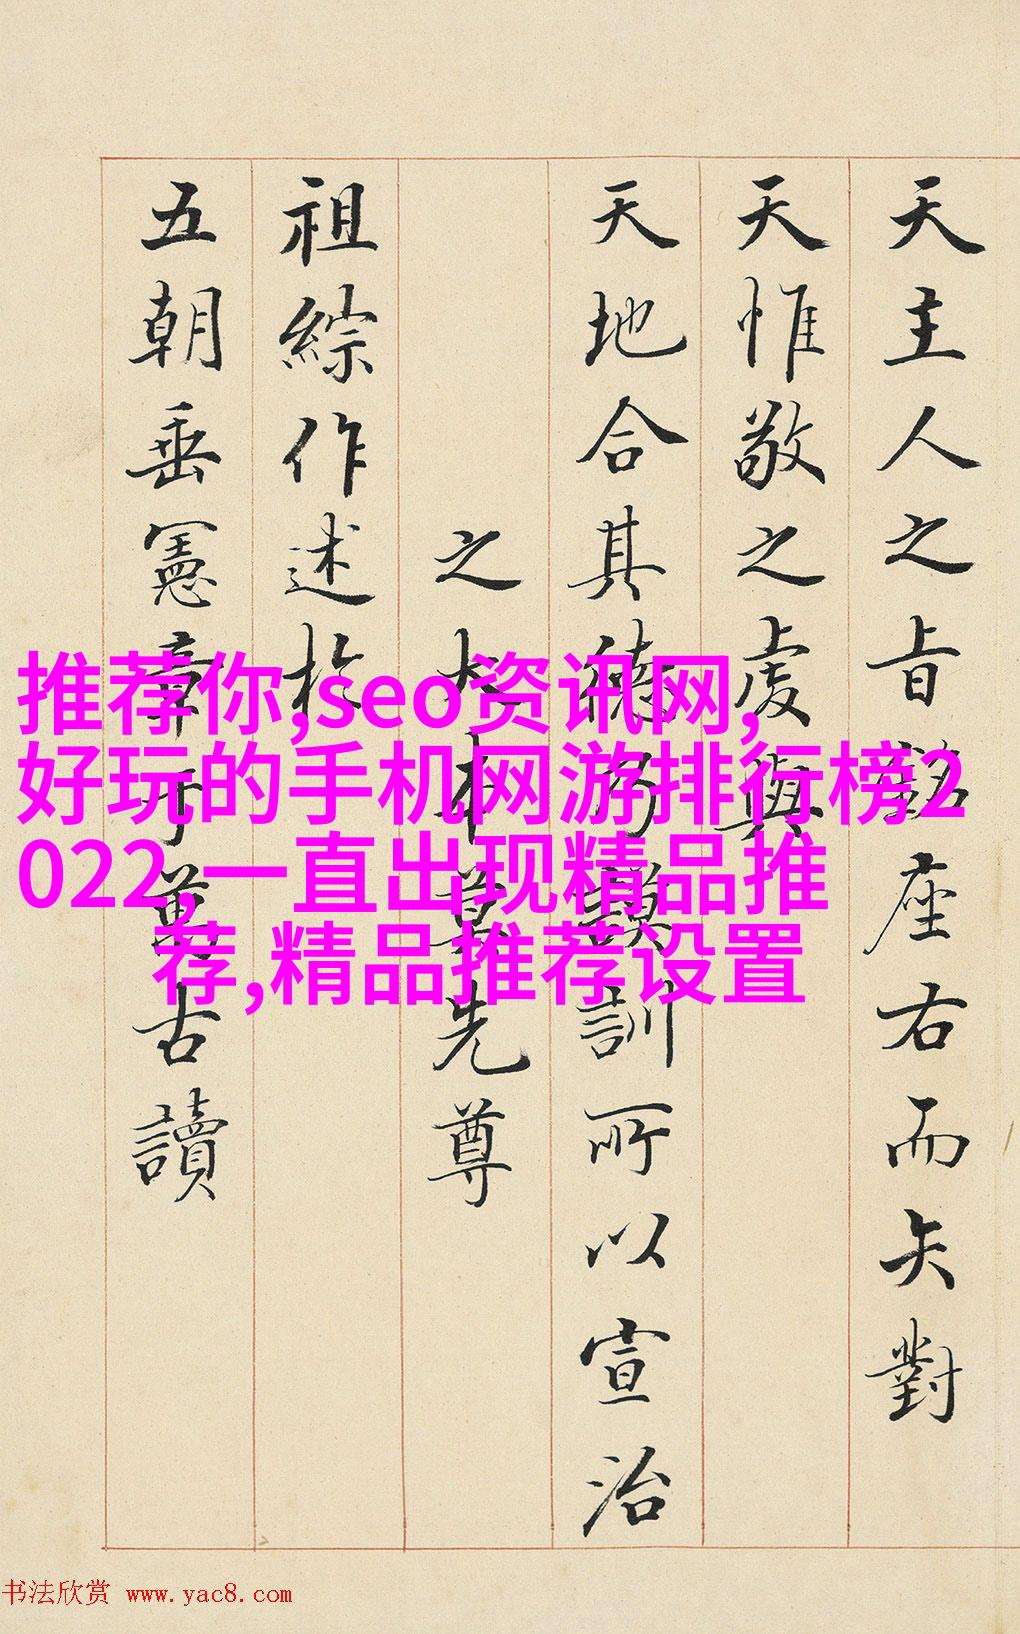 天主人之旨銘座右而矢對
天惟敬之處與
天地合其德乃謨訓所以宣治
之大本莫先尊
祖綜作述於
五朝垂憲章于萬古讀
推荐你,seo资讯网,
好玩的手机网游排行榜2
022,一直出现精品推
荐,精品推荐设置
书法欣赏 www.yac8.com